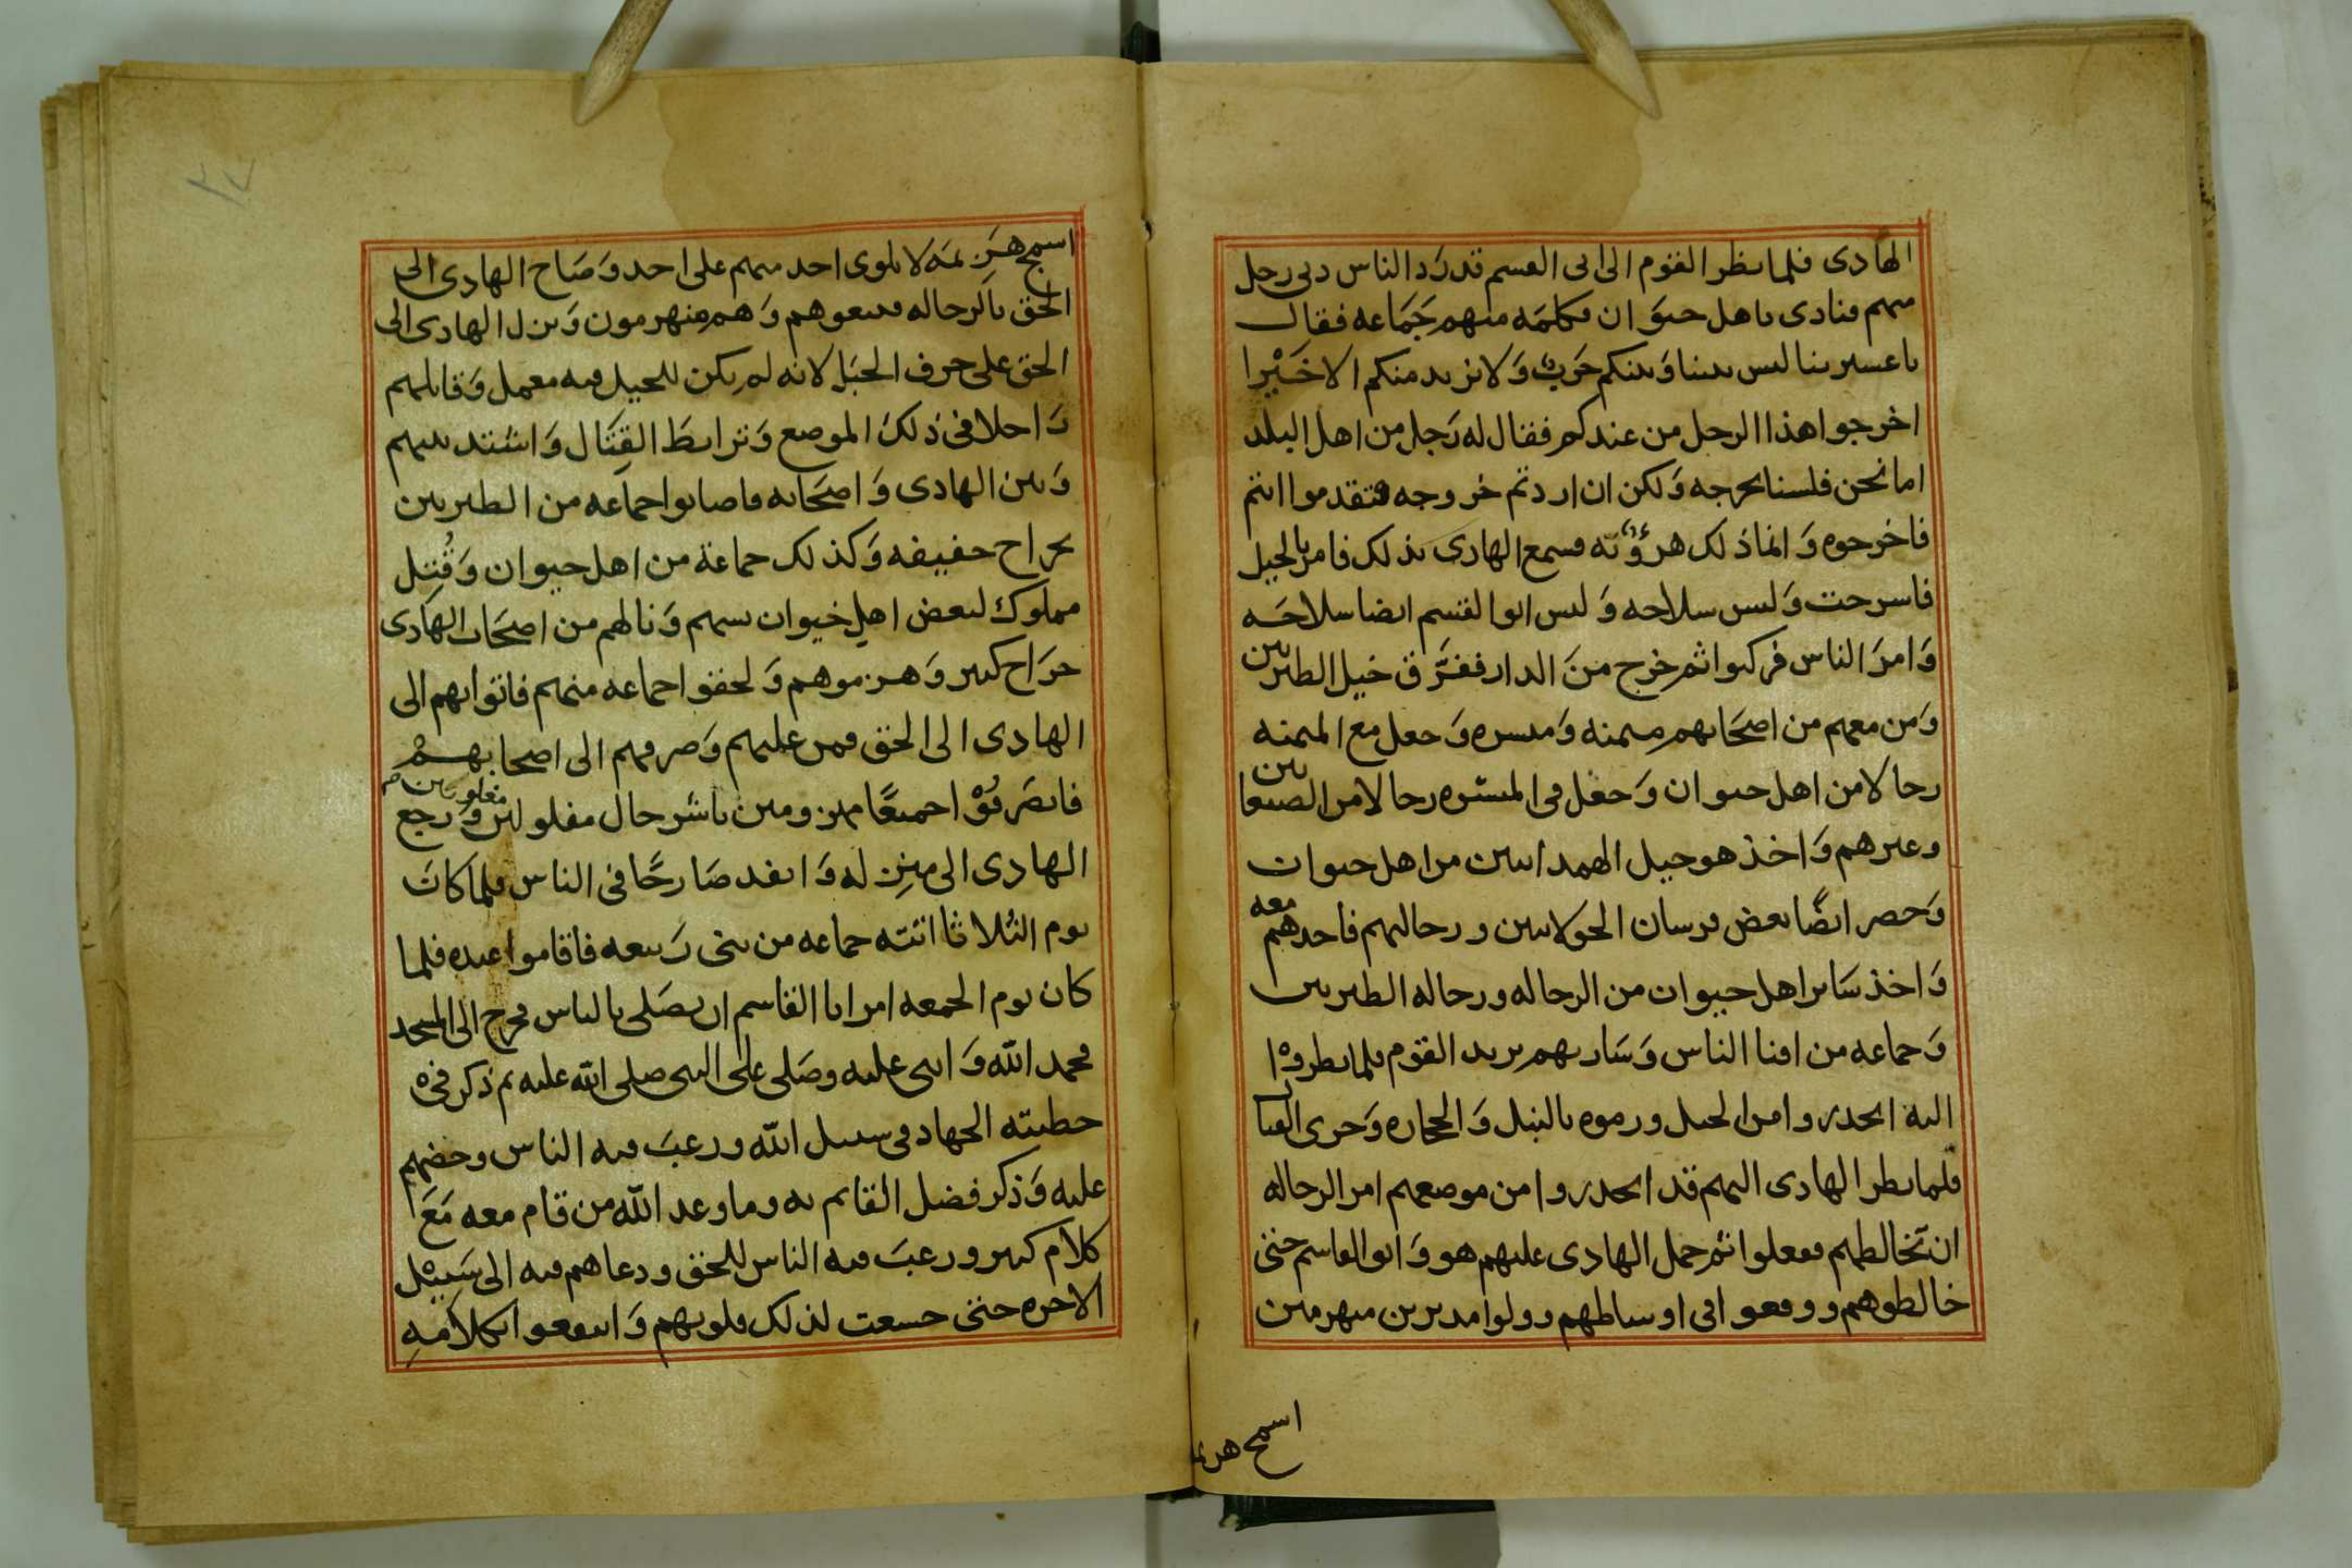 الهادى فلما نظر القوم الى ابى القسم قد رد الناس دنى رجل
منهم فنادى ياهل حيوان فكلمه منهم جماعه فقال
يا عسيرتنا ليس بيننا وبينكم حرب ولا نريد منكم الا خيرا
اخرجوا هذا الرجل من عندكم فقال له رجل من اهل البلد
اما نحن فلسنا نخرجه ولكن ان اردتم خروجه فتقدموا انتم
فاخرجوه وانما ذلك هزؤ به فسمع الهادى بذلك فامر بالخيل
فاسرجت ولبس سلاحه ولبس ابوا لقسم ايضا سلاحه
وامر الناس فركبوا ثم خرج من الدار ففرق خيل الطبريين
ومن معهم من اصحابهم ميمنه وميسره وجعل مع الميمنه
رجالا من اهل حيوان وجعل فى الميسره رجالا من الصنعانيين
وغيرهم واخذ هو خيل الهمدانيين من اهل حيوان
وحضر ايضا بعض فرسان الخولانيين ورجالهم فاخذهم معه
واخذ ساير اهل حيوان من الرجاله ورجاله الطبريين
وجماعه من افنا الناس وسار بهم يريد القوم فلما نظروا
اليه انحدروا من الجبل ورموه بالنبل والحجاره وجرى القتال
فلما نظر الهادى اليهم قد انحدروا من موضعهم امر الرجاله
ان تخالطهم ففعلوا ثم حمل الهادى عليهم هو وابو القاسم حتى
خالطوهم ووقعوا فى اوساطهم وولوا مدبرين منهزمين
اسمج هزيمه
٣٧
اسمج هزيمه لا يلوى احد منهم على احد وصاح الهادى الى
الحق بالرجاله فتبعوهم وهم منهزمون ونزل الهادى الى
الحق على حرف الجبل لانه لم يكن للخيل فيه معمل وقاتلهم
راجلا فى ذلك الموضع وترابط القتال واشتد بينهم
وبين الهادى واصحابه فاصابوا جماعه من الطبريين
بجراح خفيفه وكذلك جماعة من اهل حيوان وقتل
مملوك لبعض اهل خيوان بسهم ونالهم من اصحاب الهادى
جراح كبير وهزموهم ولحقوا جماعه منهم فاتوا بهم الى
الهادى الى الحق فمن عليهم وصرفهم الى اصحابهم
فانصرفوا جميعا مهزومين باشر حال مفلولين مغلوبين ورجع
الهادى الى منزله وانفد صارخا فى الناس فلما كان
يوم الثلاثا اتته جماعه من بنى ربيعه فاقاموا عنده فلما
كان يوم الجمعه امر ابا القاسم ان يصلى بالناس فخرج الى المسجد
فحمد الله واثنى عليه وصلى على النبى صلى الله عليه ثم ذكر فى
خطبته الجهاد فى سبيل الله ورغب فيه الناس وحضهم
عليه وذكر فضل القايم به وما وعد الله من قام معه مع
كلام كبير ورغب فيه الناس للحق ودعاهم فيه الى سبيل
الاخره حتى خشعت لذلك قلوبهم وانتفعوا بكلامه